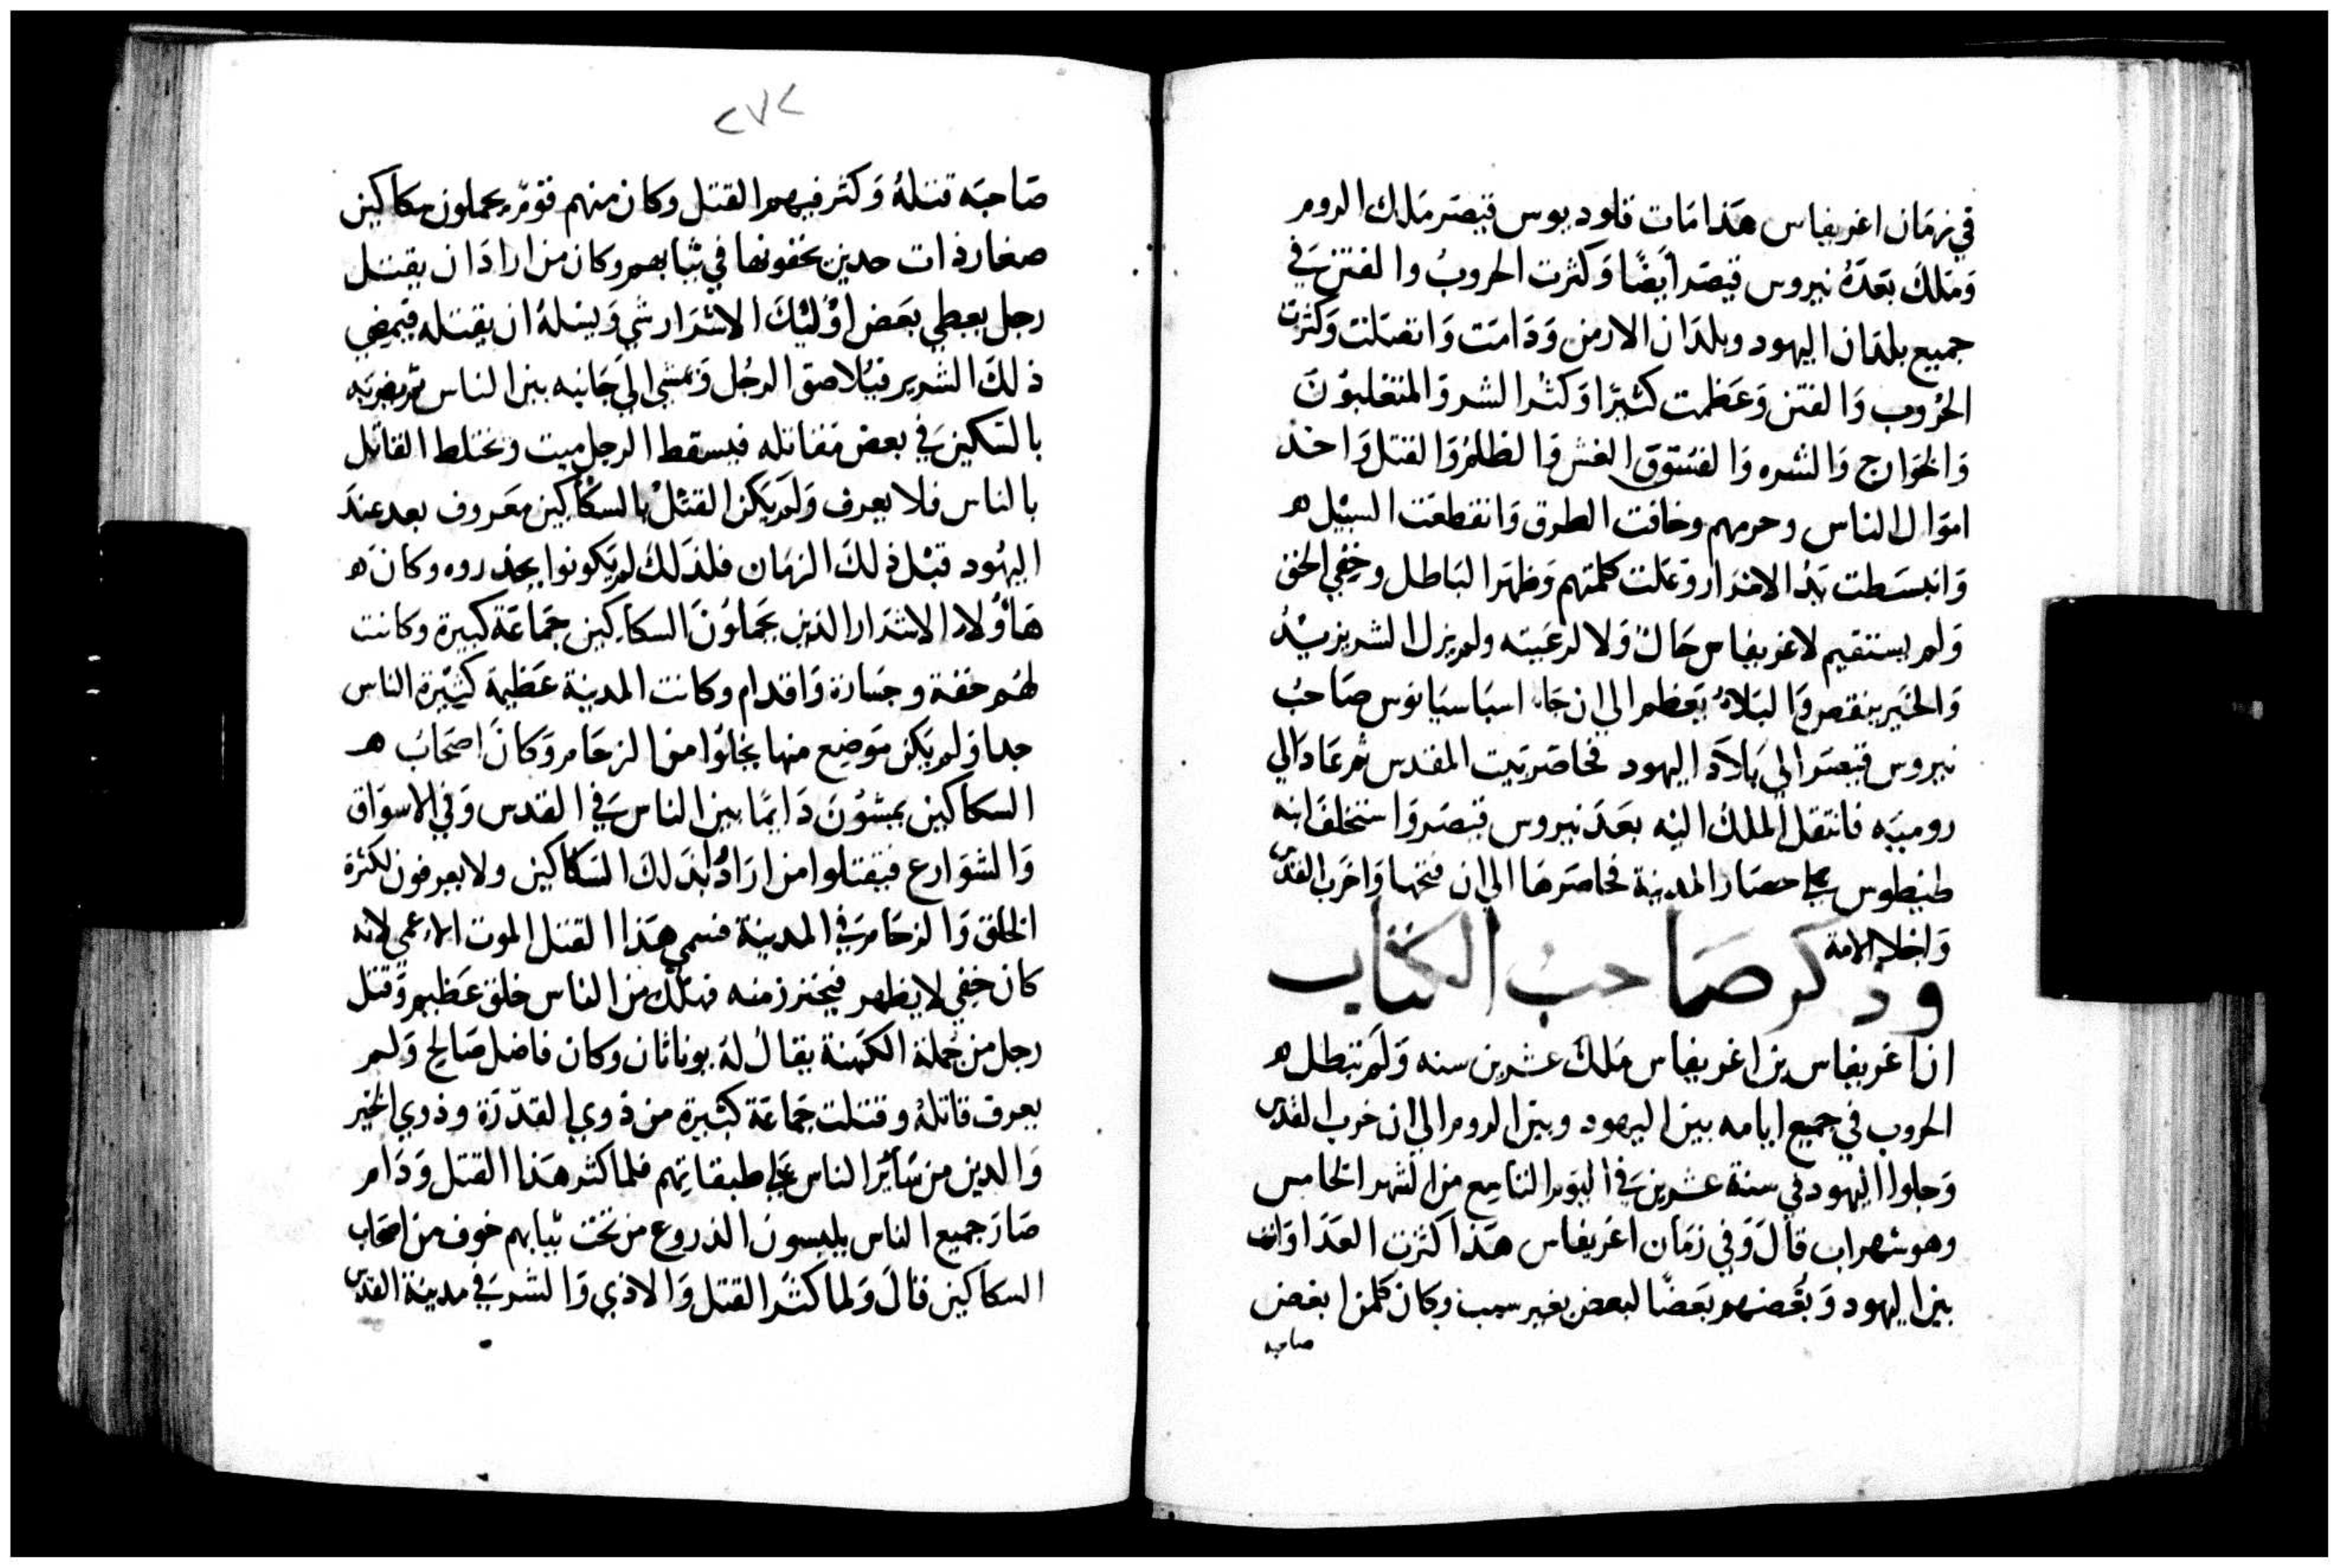 في زمان اغريفاس هذا مات قلوديوس قيصر ملك الروم
وملك بعده نيروس قيصر ايضًا وكثرت الحروب والفتن في
جميع بلدان اليهود وبلدان الارمن ودامت واتصلت وكثرت
الحروب والفتن وعظمت كثيرًا وكثر الشر والمتغلبون
والخوارج والشره والفسوق الغش والظلم والقتل واخذ
اموال الناس وحرمهم وخافت الطرق وانقطعت السبيل
وانبسطت يد الاشرار وعلت كلمتهم وظهر الباطل وخفي الحق
ولم يستقيم لاغريفاس حال ولا لرعيته ولم يزل الشر يزيد
والخير ينقص والبلاء يعظم الي ان جاء اسباسيانوس صاحب
نيروس قيصر الي بلاد اليهود فحاصر بيت المقدس ثم عاد الي
روميه فانتقل الملك اليه بعد نيروس قيصر واستخلف ابنه
طيطوس علي حصار المدينة فحاصرها الي ان فتحها واخرب القدس
واجلا الامة
وذكر صاحب الكتاب
ان اغريفاس بن اغريفاس ملك عشرين سنه ولم تبطل
الحروب في جميع ايامه بين اليهود وبين الروم الي ان خرب القدس
وجلوا اليهود في سنة عشرين في اليوم التاسع من الشهر الخامس
وهو شهر اب قال وفي زمان اغريفاس هذا كثرت العداوات
بين اليهود وبغضهم بعضًا لبعض بغير سبب وكان كلمن ابغض
صاحبه
٢٧٢
صاحبه قتله وكثر فيهم القتل وكان منهم قوم يحملون سكاكين
صغار ذات حدين يخفونها في ثيابهم وكان من اراد ان يقتل
رجل يعطي بعض اوليك الاشرار شي ويسله ان يقتله فيمضي
ذلك الشرير فيلاصق الرجل ويمشي الي جانبه بين الناس ثم يضربه
بالسكين في بعض مقاتله فيسقط الرجل ميت ويختلط القاتل
بالناس فلا يعرف ولم يكن القتل بالسكاكين معروف بعد عند
اليهود قبل ذلك الزمان فلذلك لم يكونوا يحذروه وكان
هاولاء الاشرار الذين يحملون السكاكين جماعة كبيرة وكانت
لهم خفة وجسارة واقدام وكانت المدينة عظيمة كثيرة الناس
جدا ولم يكن موضع منها يخلوا من الزحام وكان اصحاب
السكاكين يمشون دايمًا بين الناس في القدس وفي الاسواق
والشوارع فيقتلوا من ارادوا بذلك السكاكين ولا يعرفون لكثرة
الخلق والزحام في المدينة فسمي هذا القتل الموت الاعمي لانه
كان خفي لا يظهر فيحترز منه فهلك من الناس خلق عظيم وقتل
رجل من جملة الكهنة يقال له يوناثان وكان فاضل صالح ولم
يعرف قاتله وقتلت جماعة كثيرة من ذوي القدرة وذوي الخير
والدين من ساير الناس علي طبقاتهم فلما كثر هذا القتل ودام
صار جميع الناس يلبسون الدروع من تحت ثيابهم خوف من اصحاب
السكاكين قال ولما كثر القتل والاذي والشر في مدينة القدس